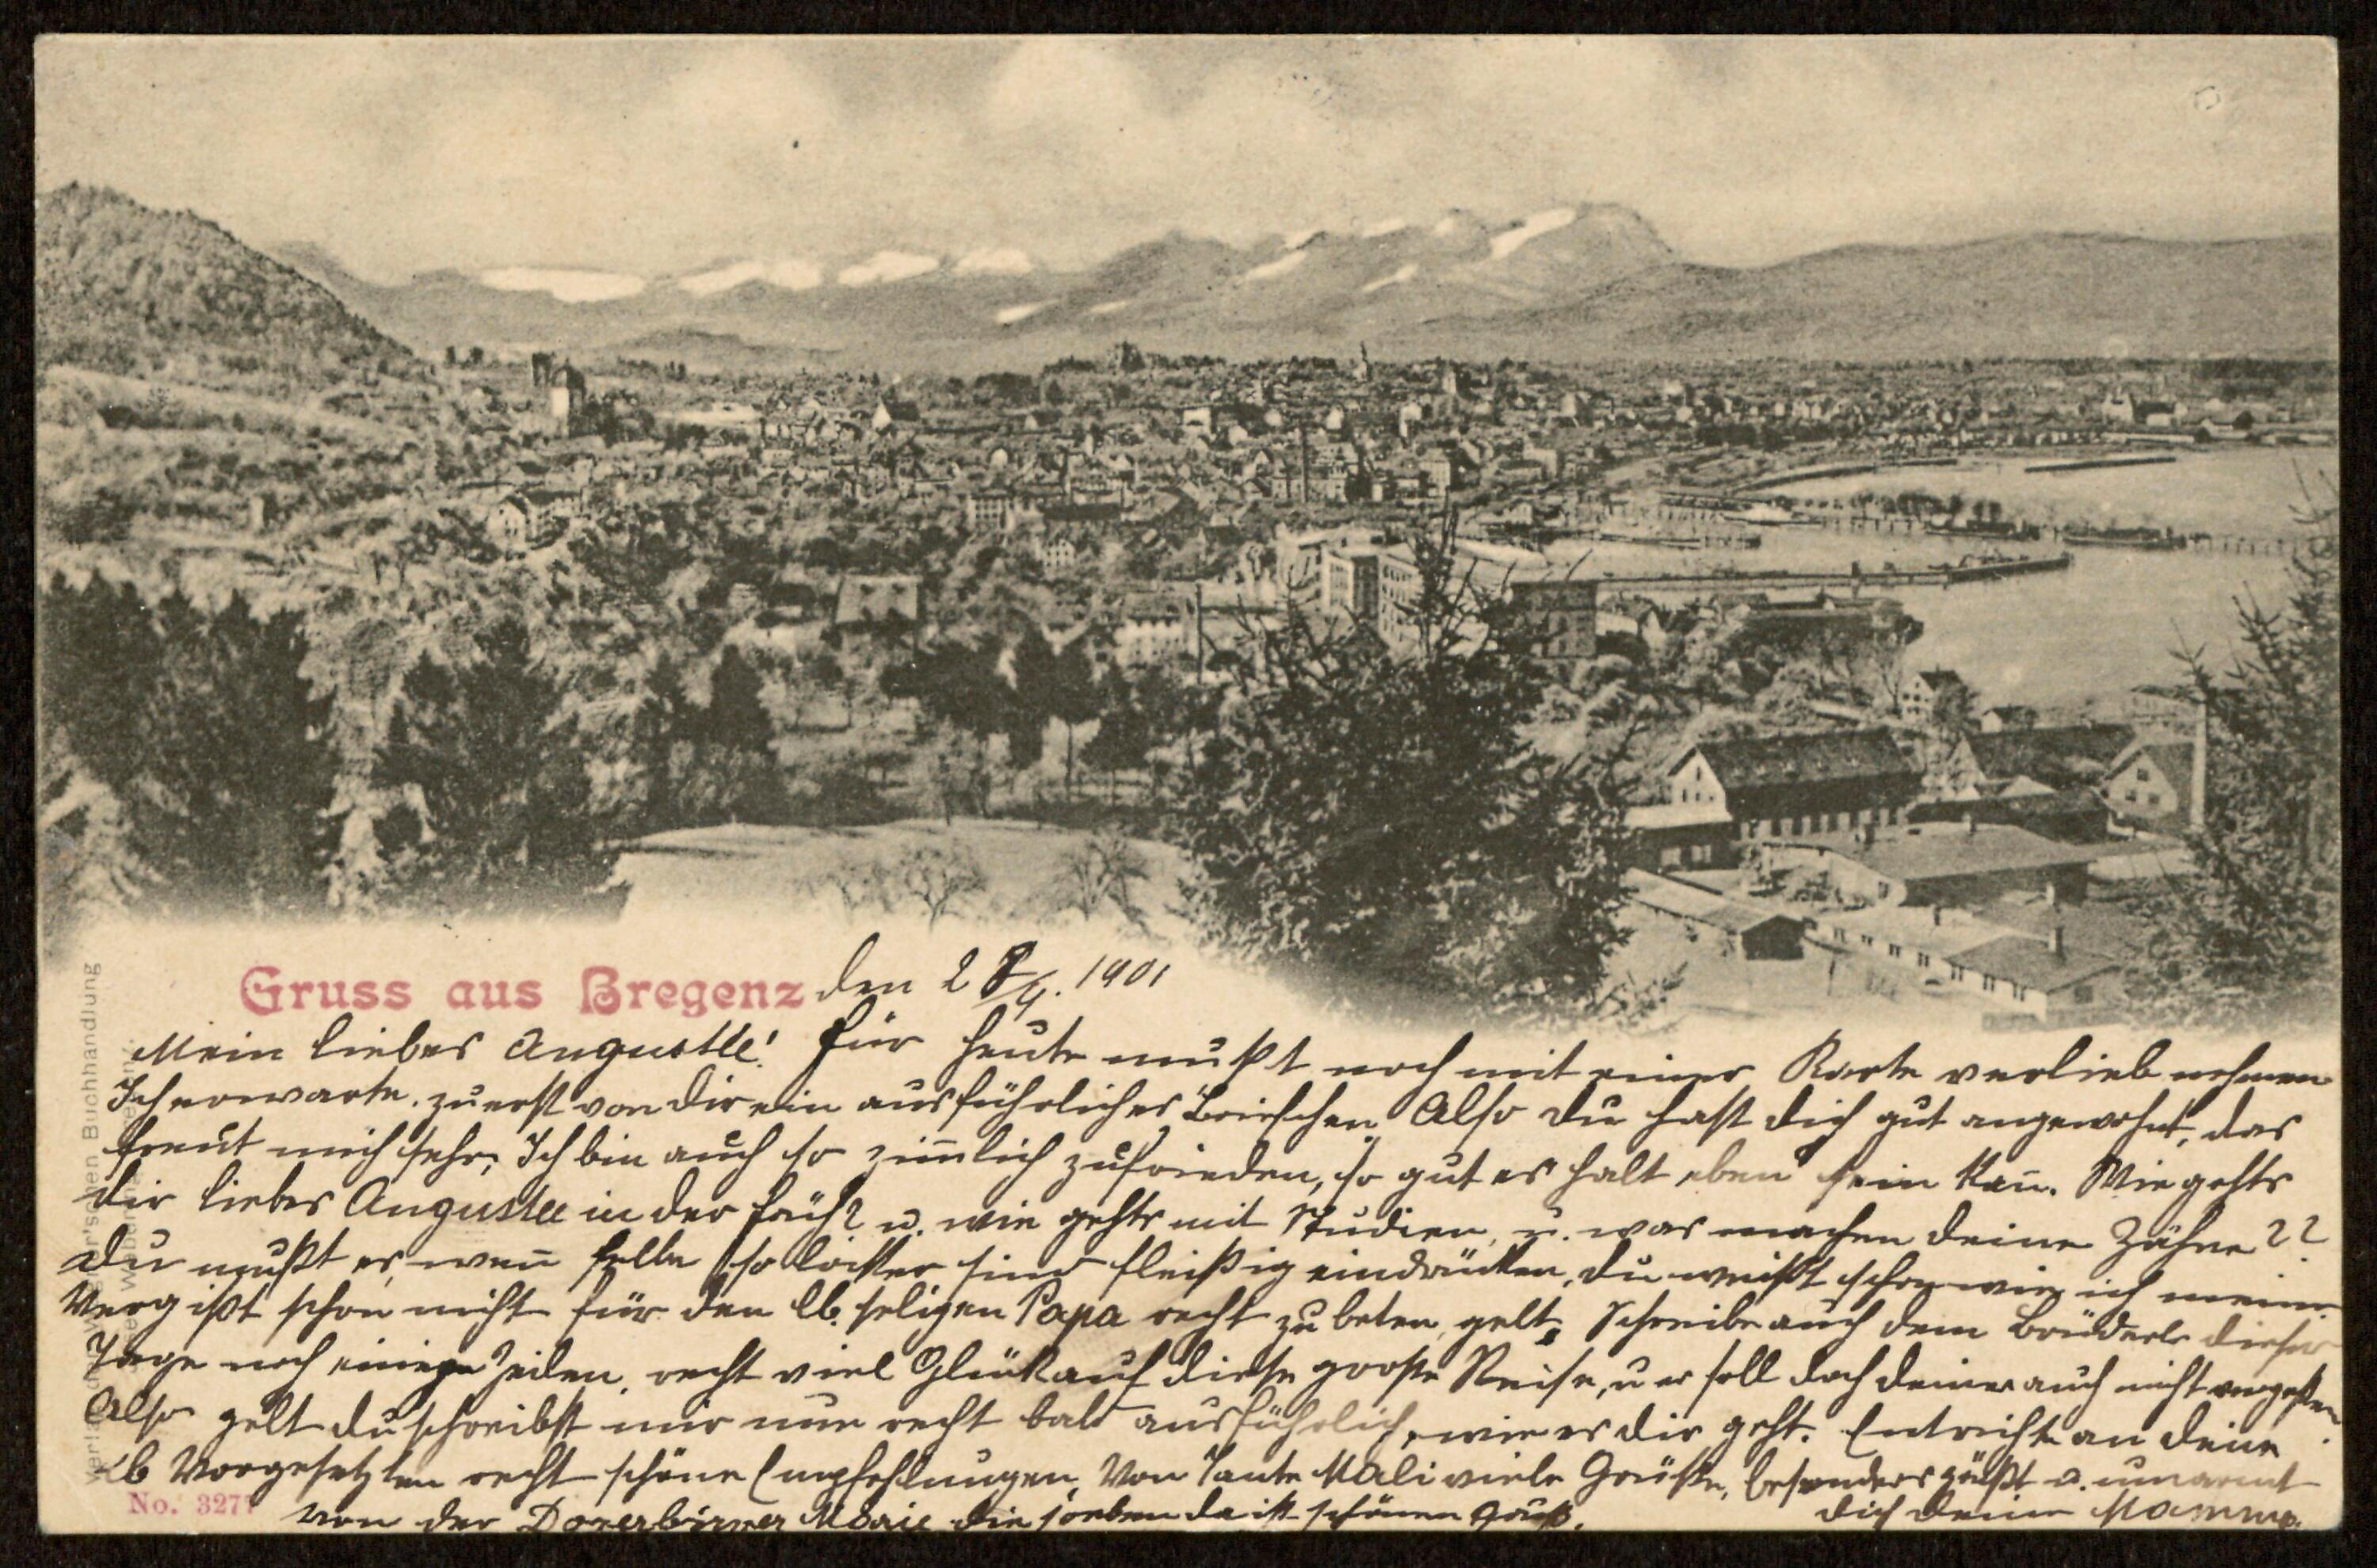 Gruss aus Bregenz den 28/4. 1901
Mein liebes Augustle! für heute mußt noch mit einer Karte verlieb nehmen
Ich erwarte zuerst von dir ein ausführliches Briefchen Also du hast dich gut angewohnt, das
freut mich sehr, Ich bin auch so zimlich zufrieden, so gut es halt eben sein kan. Wie gehts
dir liebes Augustle in der früh? u. wie gehts mit Studien, u. was machen deine Zähne??
du mußt es, wen selbe so locker sind fleißig eindrücken, du weißt schon wie ich meine
Vergißt schon nicht für den lb. seligen Papa recht zu beten, gelt, Schreibe auch dem Brüderle dieser
Tage noch einige Zeilen, recht viel Glück auf diese große Reise, u er soll doch deiner auch nicht vergeßen.
Also gelt du schreibst mir nun recht bald ausführlich, wie es dir geht. Entrichte an deine
Lb Vorgesetzten recht schöne Empfehlungen, Von Tante Mali viele Grüße, besonders grüßt u. umarmt
von der Dorerbirner Marie die soeben da ist schönen Gruß. dich deine Mamma.
No. 3277
Buchhandlung